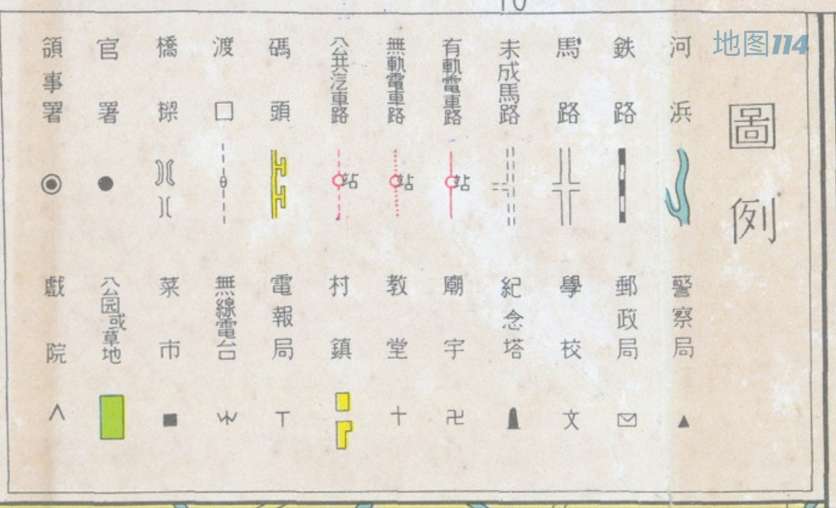 10
地图114
圖例
河浜
鉄路
馬路
未成馬路
有軌電車路
站
無軌電車路
站
公共汽車路
站
碼頭
渡口
橋樑
官署
領事署
警察局
郵政局
學校
文
紀念塔
廟宇
卍
教堂
村鎮
電報局
無線電台
菜市
公园或草地
戲院